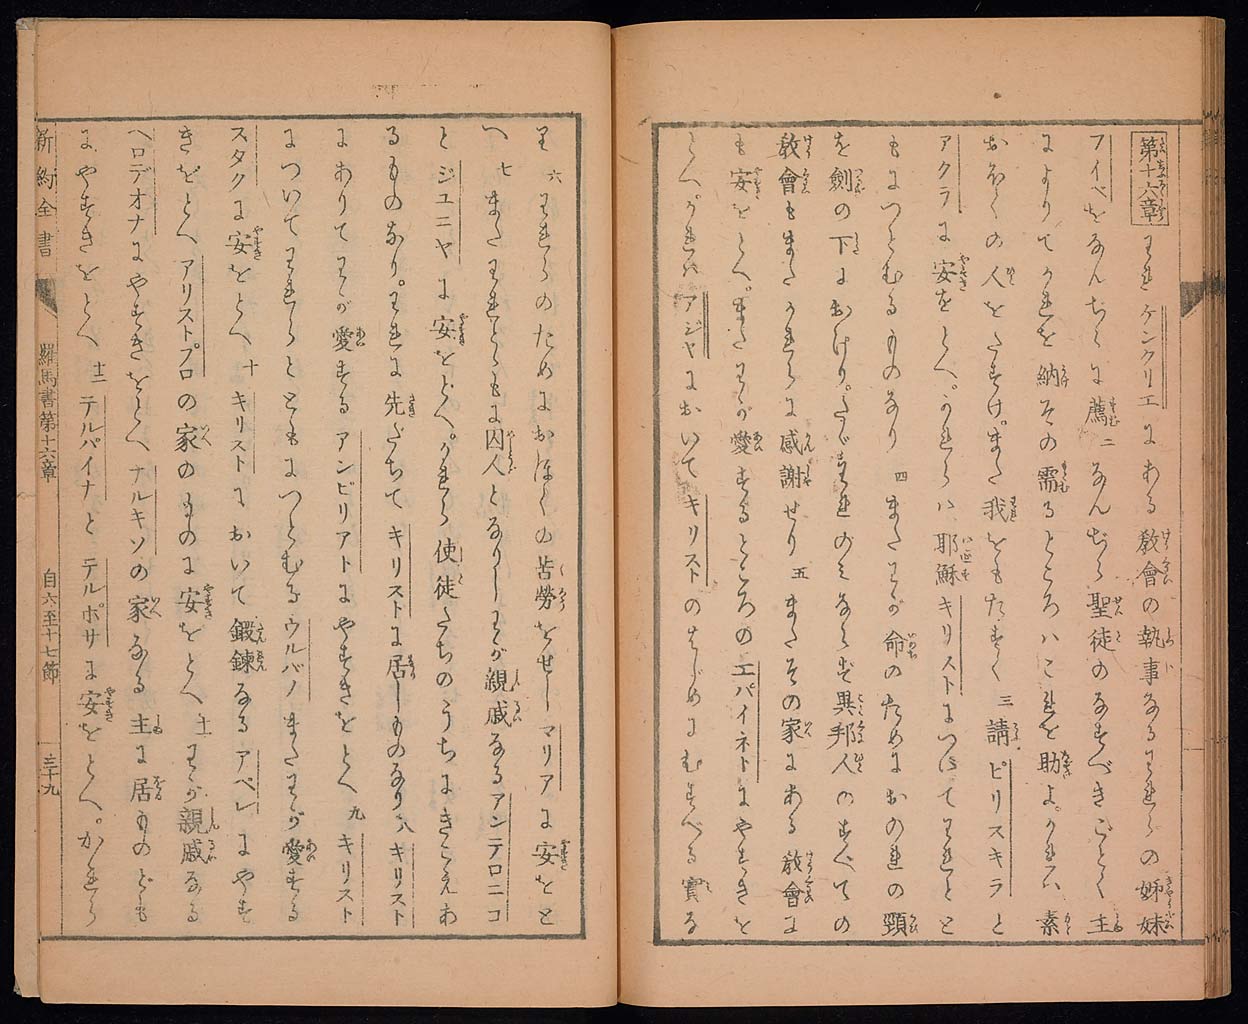 第十六章 われケンクリエにある敎會の執事なるわれらの姉妹
フイベをなんぢらに薦 二 なんぢら聖徒のなすべきごとく主
によりてかれを納その需るところハこれを助よかれハ素
おほくの人をたすけ。また我をもたすく 三 請ピリスキラと
アクラに安をとへ。かれらハ耶穌キリストにつけてわれとと
もにつとむるものなり 四 またわが命のためにおのれの頸
を劍の下におけり。たゞわれのみならず異邦人のすべての
敎會もまたかれらに感謝せり 五 またその家にある敎會に
も安をとへ。またわが愛するところのエパイネトにやすきを
とへ。かれハアジヤにおいてキリストのはじめにむすべる實な
り 六 われらのためにおほくの苦勞をせしマリアに安をと
へ 七 またわれとともに囚人となりしわが親戚なるアンデロニコ
とジユニヤに安をとへ。かれら使徒たちのうちにきこえあ
るものなり。われに先だちてキリストに居しものなり 八 キリスト
にありてわが愛するアンピリアトにやすきをとへ 九 キリスト
についてわれらとともにつとむるウルバノまたわが愛する
スタクに安をとへ 十 キリストにおいて鍛鍊なるアペレにやす
きをとへアリストプロの家のものに安をとへ 十一 わが親戚なる
ヘロデオナにやすきをとへナルキソの家なる主に居ものども
にやすきをとへ 十二 テルパイナとテルポサに安をとへ。かれら
新約全書 羅馬書第十六章 自六至十七節 三十九